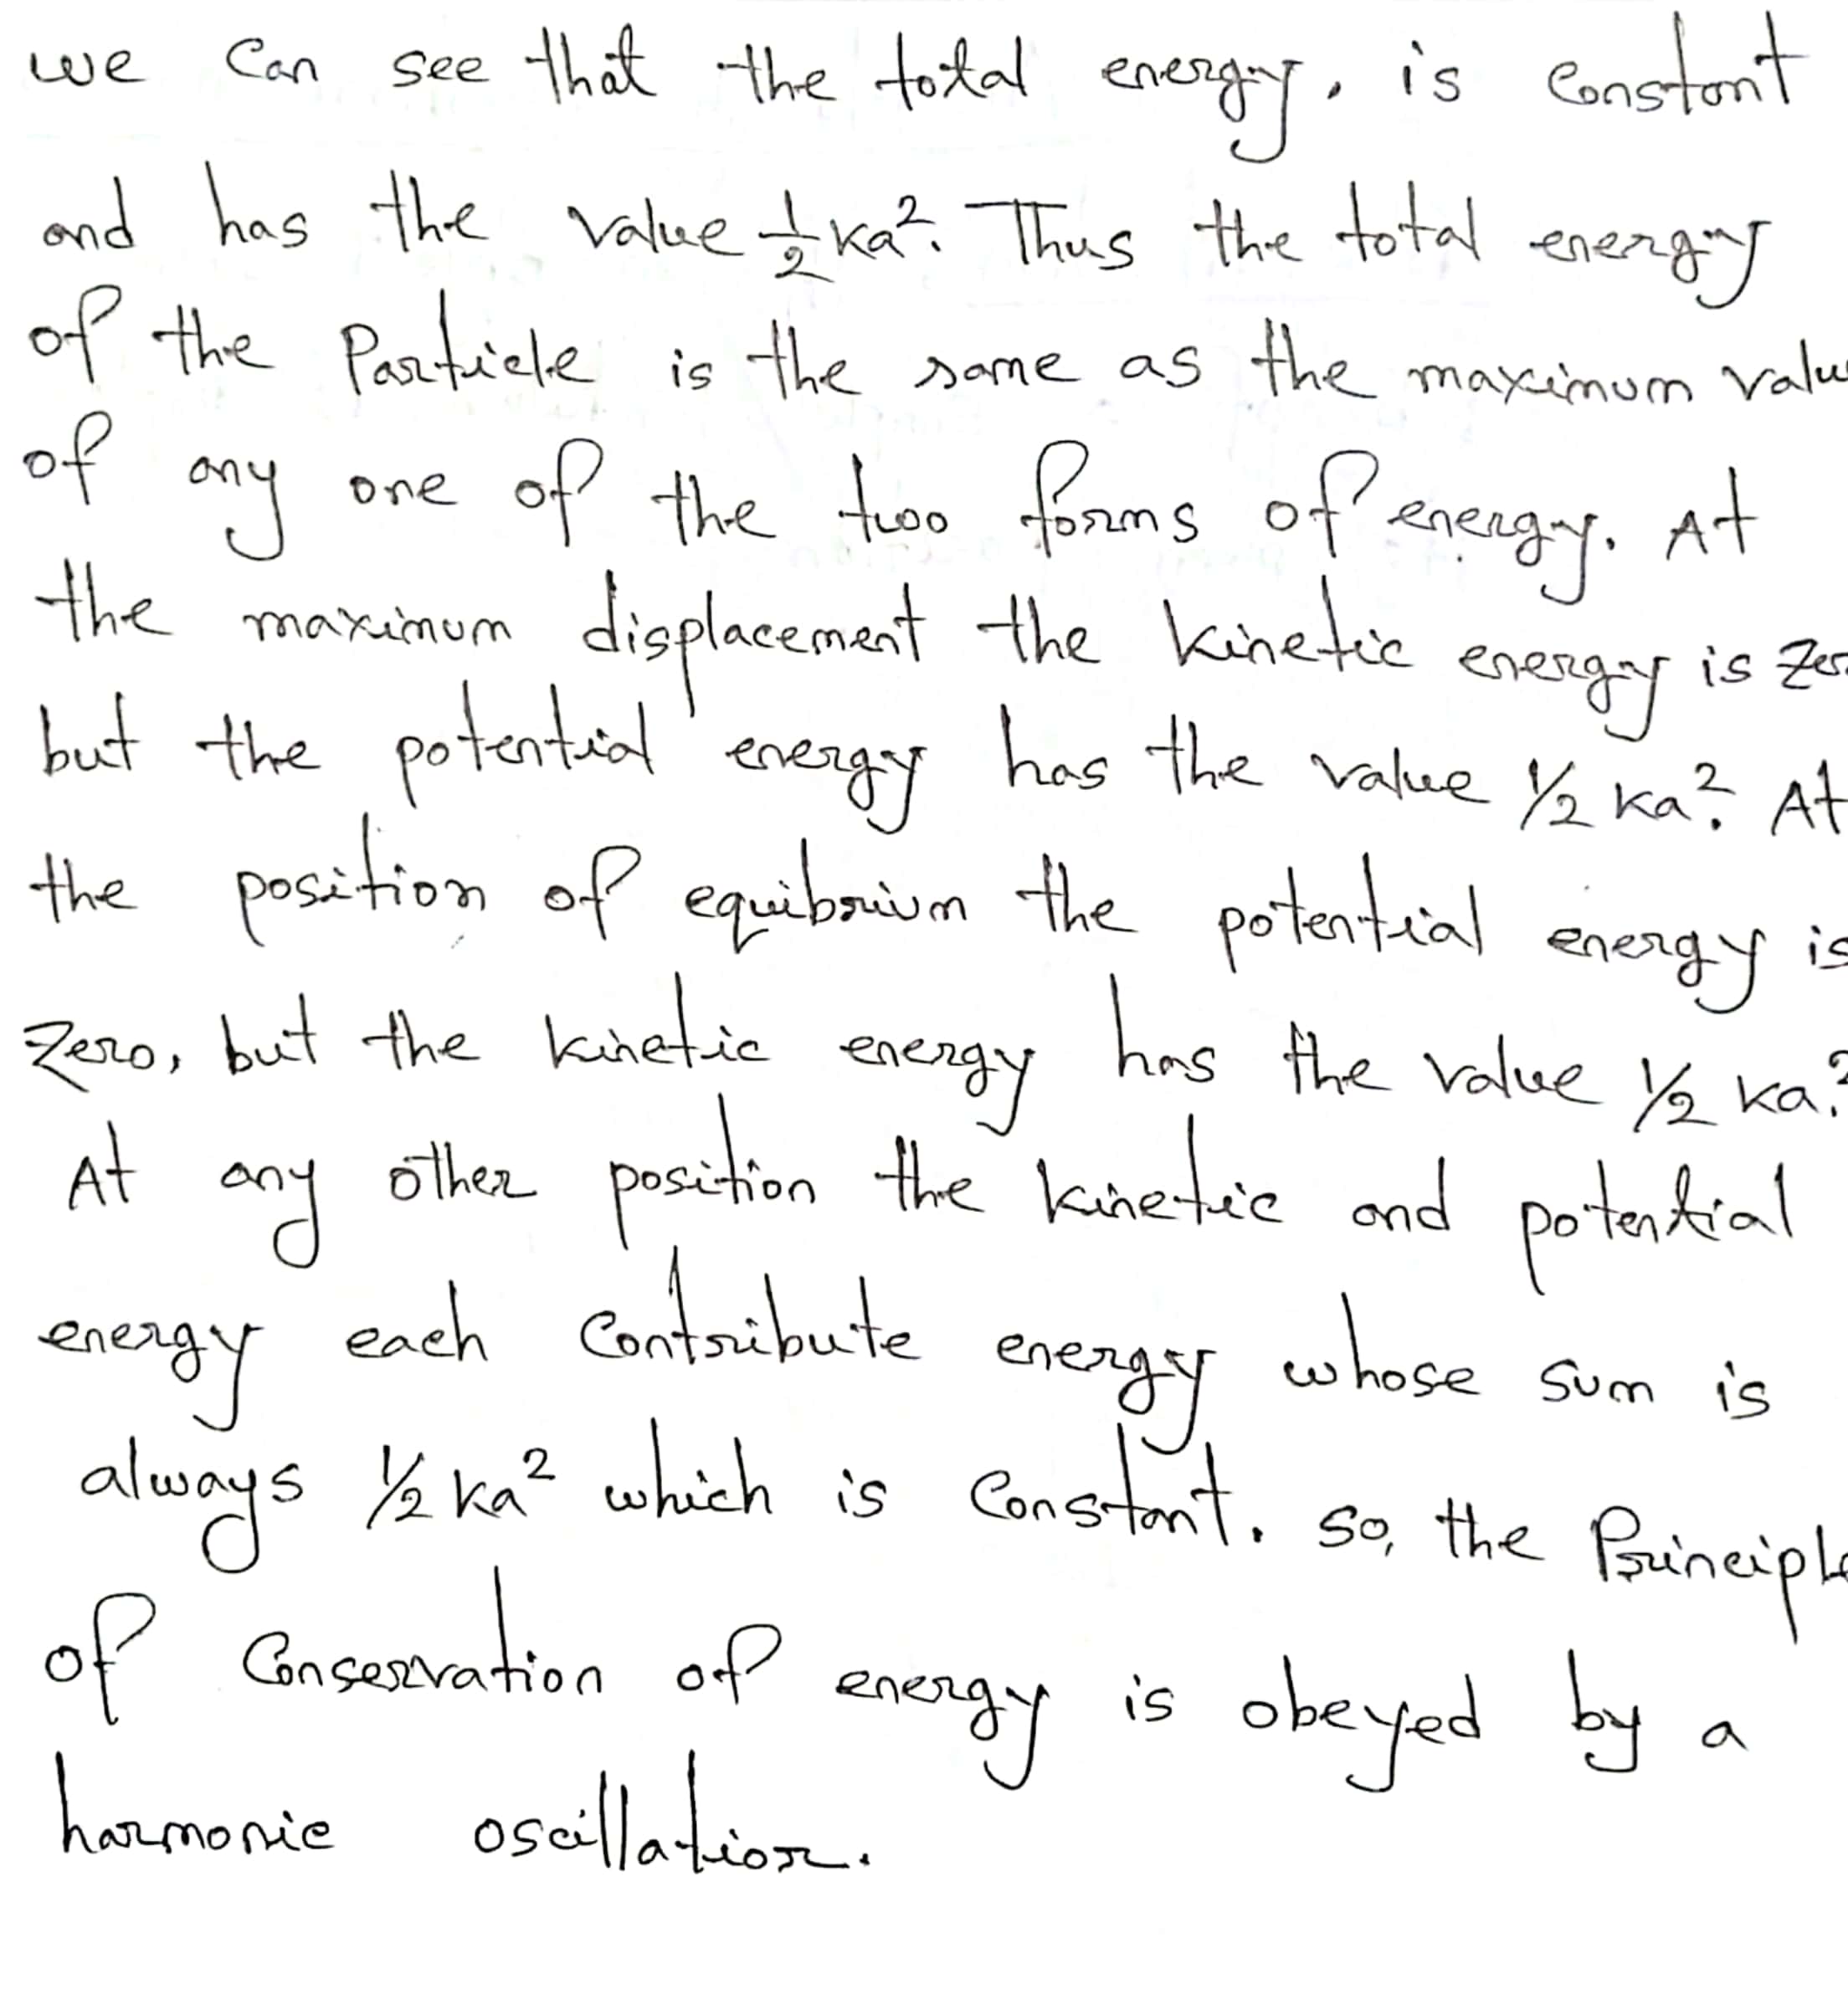 we can see that the total energy, is constant
and has the value ½ka². Thus the total energy
of the Particle is the same as the maximum valu
of any one of the two forms of energy. At
the maximum displacement the kinetic energy is zer
but the potential energy has the value ½ ka². At
the position of equibrium the potential energy is
zero, but the kinetic energy has the value ½ ka².
At any other position the kinetic and potential
energy each contribute energy whose sum is
always ½ ka² which is constant. so, the Principle
of Conservation of energy is obeyed by a
harmonic oscillatior.